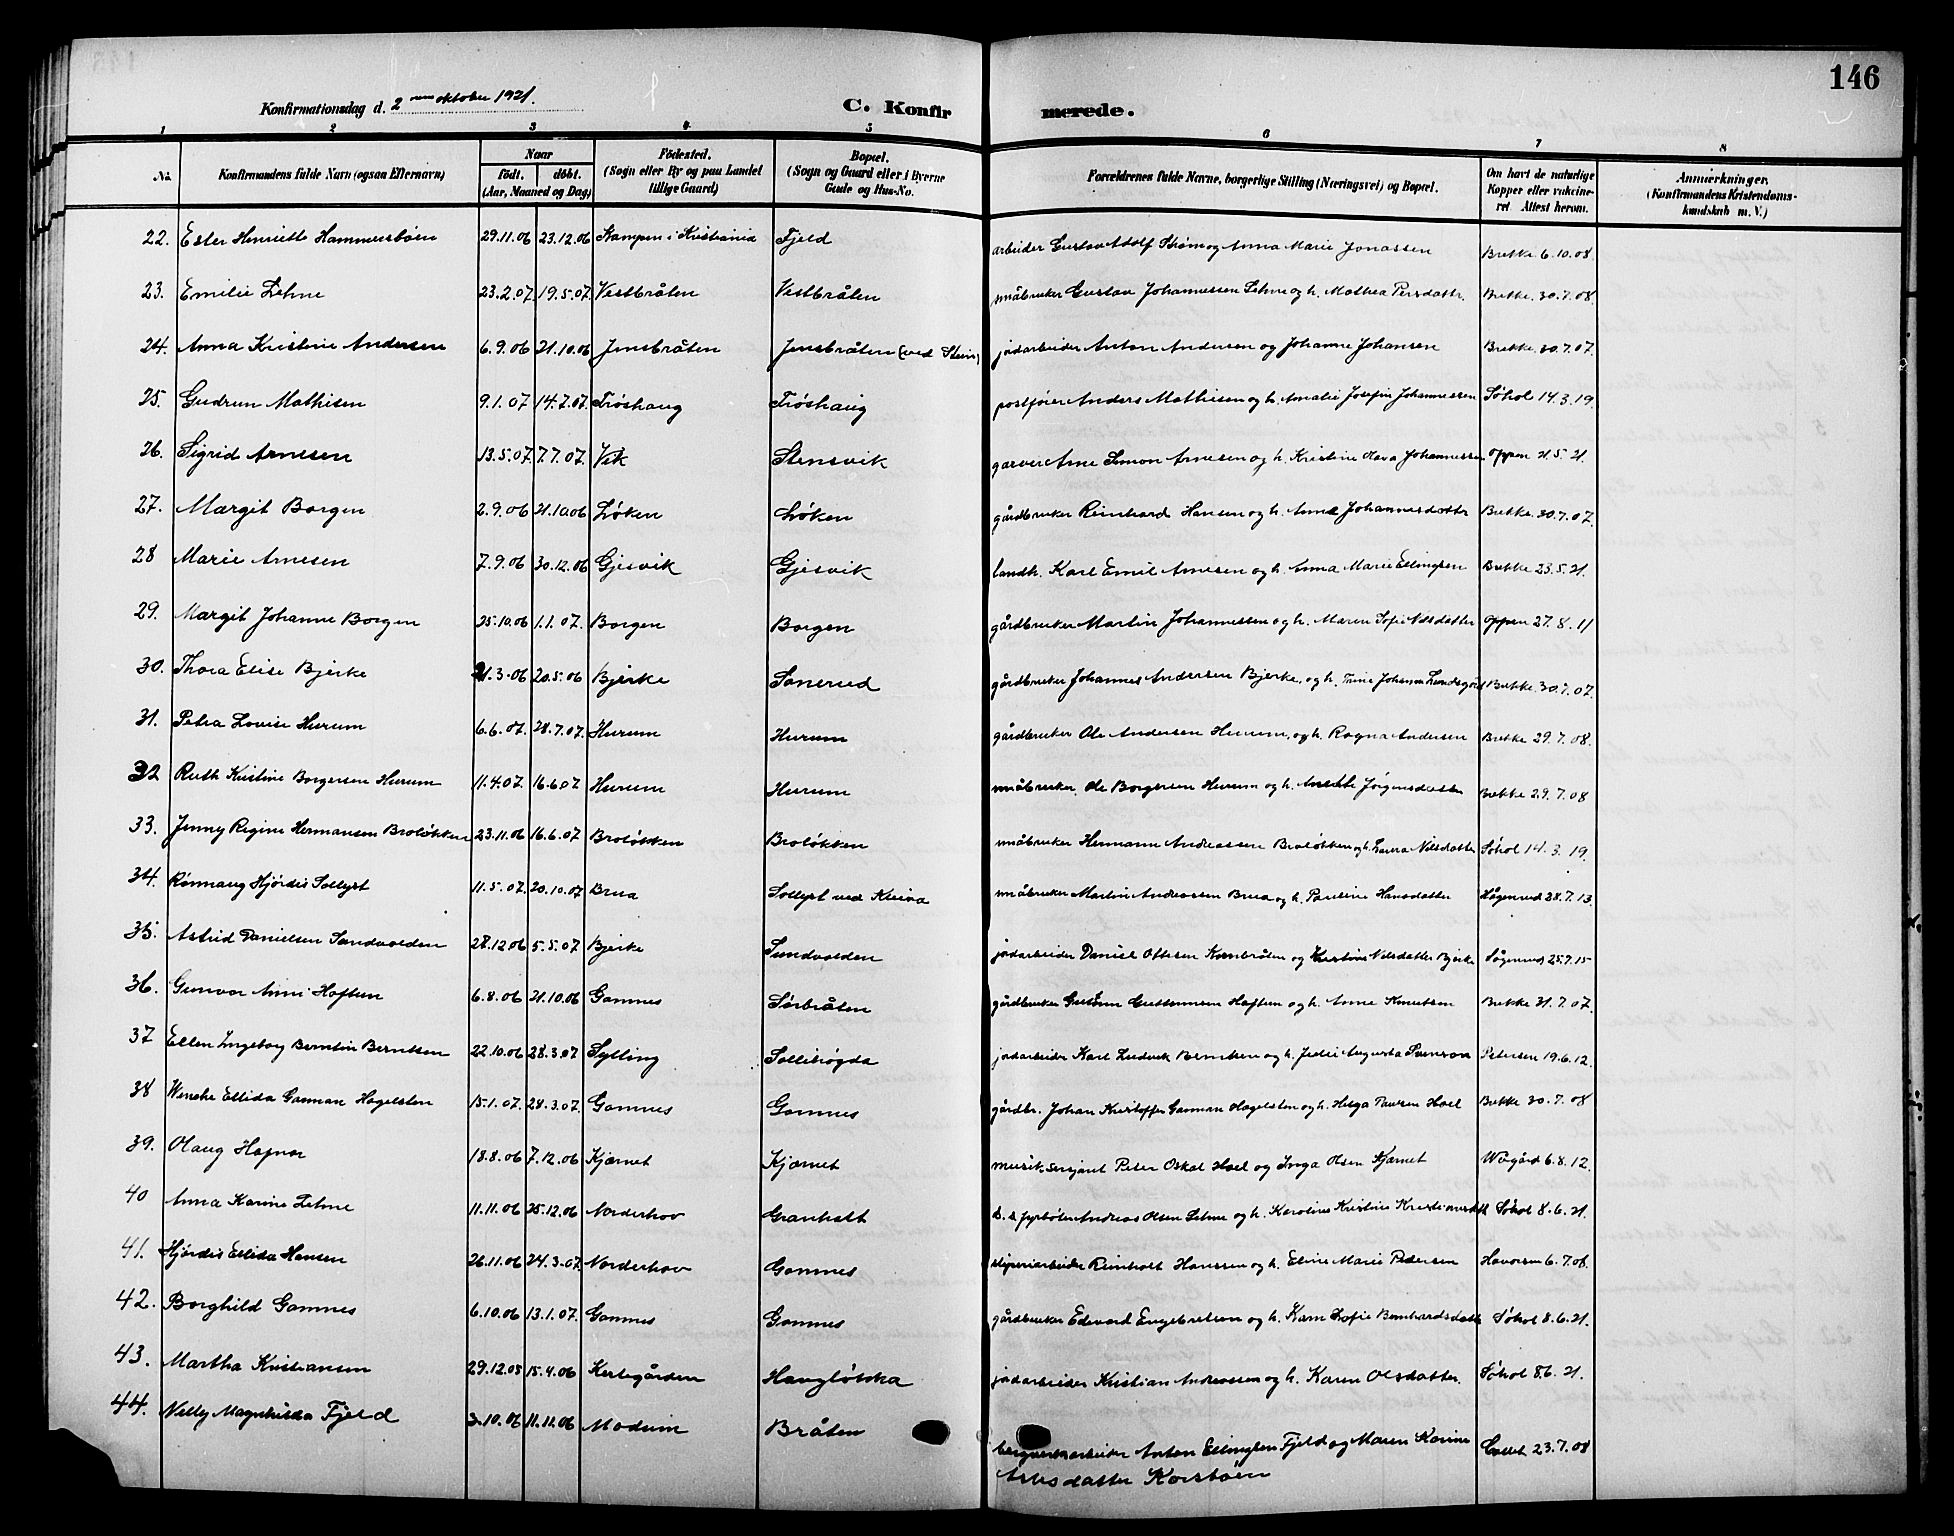 146
Konfirmationsdag d. 2 oktober 1921.
C. Konfirmerede.
1 2 3 4 5 6 7 8
No. Konfirmandens fulde Navn (ogsaa Efternavn) Naar født. døbt. (Aar, Maaned og Dag) Fødested. (Sogn eller By og paa Landet tillige Gaard) Bopæl. (Sogn og Gaard eller i Byerne Gade og Hus-No. Forældrenes fulde Navne, borgerlige Stilling (Næringsvei) og Bopæl. Om havt de naturlige Kopper eller vakcineret Attest herom. Anmærkninger. (Konfirmandens Kristendomskundskab m. V.)
22. Ester Henriette Hammersbøen 29.11.06 23.12.06 Kampen i Kristiania Fjeld arbeider Gustav Adolf Strøm og Anna Marie Jonassen Bretke 6.10.08.
23. Emilie Lehne 23.2.07. 19.5.07. Vestbråten Vestbråten småbruker Gustav Johannessen Lehne og h. Mathea Persdatter. Bretke. 30.7.08.
24. Anna Kristine Andersen 6.9.06 21.10.06 Jensbråten Jensbråten (ved Stein) jordarbeider Anton Andersen og Johanne Johansen Bretke. 30.7.07.
25. Gudrun Mathisen 9.1.07 14.7.07. Trøshaug Trøshaug postfører Anders Mathisen og h. Amalie Josefine Johannessen Søhol 14.3.19.
26. Sigrid Arnesen 13.5.07. 7.7.07. Vik Stensvik garver Arne Simon Arnesen og h. Kristine Olava Johannessen Oppen 21.5.21.
27. Margit Borgen 2.9.06 21.10.06 Løken Løken gårdbruker Reinhard Hansen og h. Anne Johannesdatter Bretke. 30.7.07.
28 Marie Arnesen 7.9.06 30.12.06 Gjesvik Gjesvik landh. Karl Emil Arnesen og h. Anna Marie Ellingsen Bretke 23.5.21.
29. Margit Johanne Borgen 25.10.06 1.1.07. Borgen Borgen gårdbruker Martin Johannessen og h. Maren Sofie Nilsdatter Oppen 27.8.11
30. Thora Elise Bjerke 21.3.06 20.5.06 Bjerke Sønerud gårdbruker Johannes Andersen Bjerke, og h. Trine Johanne Lundsgård Bretke. 30.7.07.
31. Petra Lovise Hurum 6.6.07. 28.7.07. Hurum Hurum gårdbruker Ole Andersen Hurum, og h. Ragna Andersen Bretke 29.7.08.
32 Ruth Kristine Borgersen Hurum 11.4.07. 16.6.07. Hurum Hurum småbruker. Ole Borgersen Hurum og h. Anette Jørgensdatter Bretke 29.7.08
33. Jenny Regine Hermansen Broløkken 23.11.06 16.6.07 Broløkken Broløkken småbruker Hermann Andreassen Broløkken og h. Laura Nilsdatter Søhol 14.3.19.
34. Rønnaug Hjørdis Sollyst 11.5.07. 20.10.07 Brua Sollyst ved Kleiva småbruker Martin Andreassen Brua og h. Pauline Hansdatter Hågenrud 28.7.13.
35. Astrid Danielsen Sundvolden 28.12.06 5.5.07. Bjerke Sundvolden jordarbeider Daniel Ottesen Kornbråten og Kristine Nilsdatter Bjerke 25.9.15
36. Gunvor Anni Haftun 6.8.06 21.10.06 Gomnes Sørbråten gårdbruker Guttormsen Haftun og h. Anne Knutsen Bretke 31.7.07.
37 Ellen Ingeborg Berntine Berntsen 22.10.06 28.3.07 Sylling Sollihøgda jordarbeider Karl Ludvik Berntsen og h. Julie Augusta Svenson Petersen 19.6.12.
38 Wenche Ellida Gannan Hagelsten 15.1.07. 28.3.07. Gomnes Gomnes gårdbr. Johan Kristoffer Gannan Hagelsten og h. Helga Paursen Hoel Bretke 30.7.08
39. Olaug Hafnor 18.8.06 7.12.06 Kjærnet Kjærnet musik.sersjant Peter Oskar Hoel og Inga Olsen Kjærnet Wågård 6.8.12.
40 Anna Karine Lehne 11.11.06 25.12.06 Norderhov Granholt Andreas Olsen Lehne og h. Karoline Kristine Kristiansdtt Søhol 8.6.21.
41. Hjørdis Ellida Hansen 26.11.06 24.3.07. Norderhov Gomnes sliperiarbeider Reinholt Hanssen og h. Eline Marie Pedersen Havorsen 6.7.08.
42. Borghild Gomnes 6.10.06 13.1.07. Gomnes Gomnes gårdbruker Edevard Engebretsen og h. Karn Sofie Bernhardsdatter Søhol 8.6.21.
43. Martha Kristiansen 29.12.05 15.4.06 Kertegården Haugløkka jordarbeider Kristian Andreassen og h. Karen Olsdatter. Søhol 8.6.21.
44. Nelly Magnhilda Fjeld 3.10.06 11.11.06 Modum Bråten bergverksarbeider Anton Ellingsen Fjeld og Maren Karine 23.7.08
Arnesdatter Korsbøen